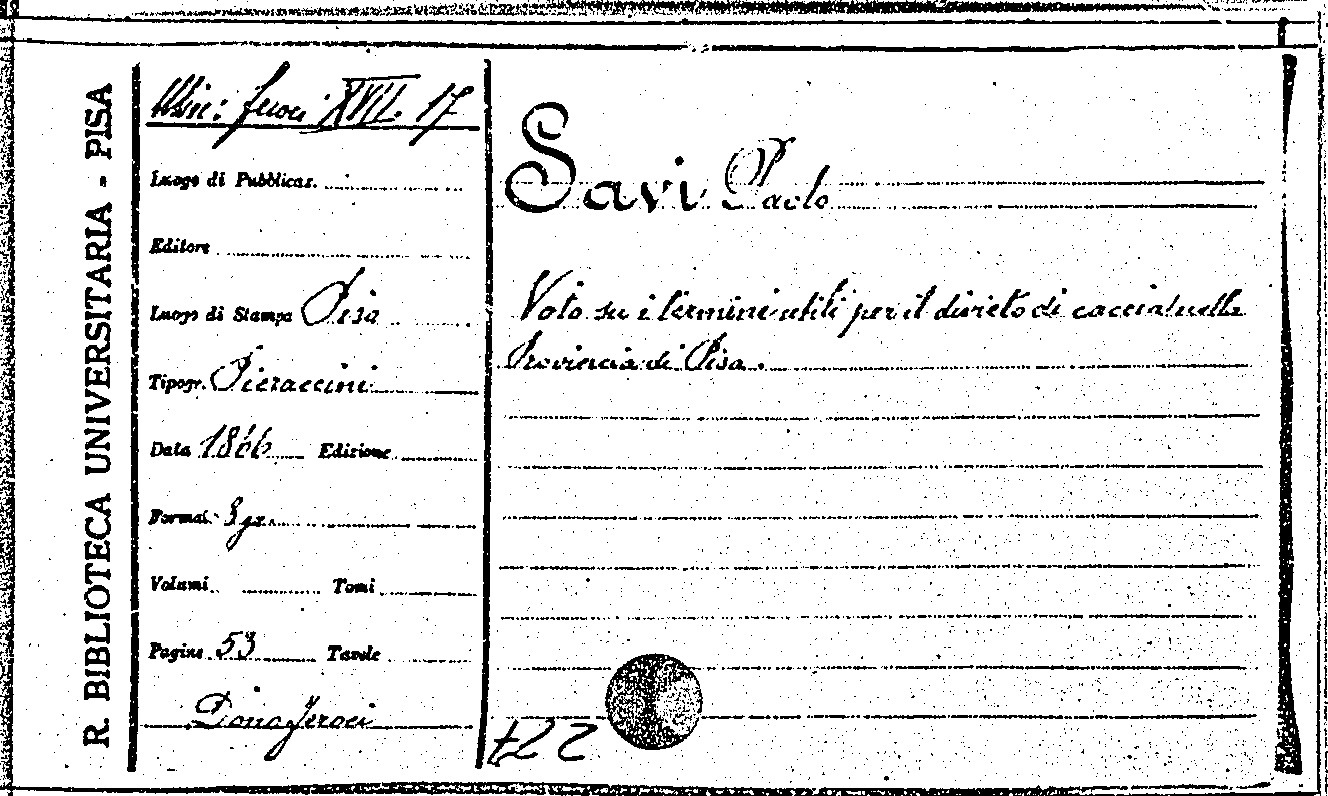 R. BIBLIOTECA UNIVERSITARIA - PISA
Misc: Feroci XVII. 17
Luogo di Pubblicaz.
Editore
Luogo di Stampa Pisa
Tipogr. Pieraccini
Data 1866 Edizione
Format. 8 gr.
Volumi Tomi
Pagine 53 Tavole
Dono Feroci
Savi Paolo
Voto su i termini utili per il divieto di caccia nella
Provincia di Pisa.